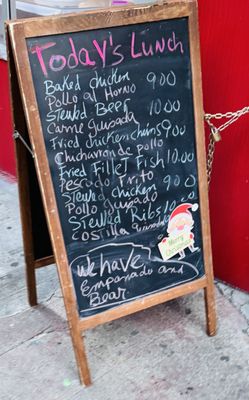 Today's Lunch
Baked chicken 9.00
Pollo al Horno
Stewed Beef 10.00
Carne Guisada
Fried chicken chunks 9.00
Chicharron de pollo
Fried Fillet Fish 10.00
Pescado Frito
Stewed chicken 9.00
Pollo Guisado
Stewed Ribs 10.00
Costilla
Merry
we Have
Empanada and
Bear